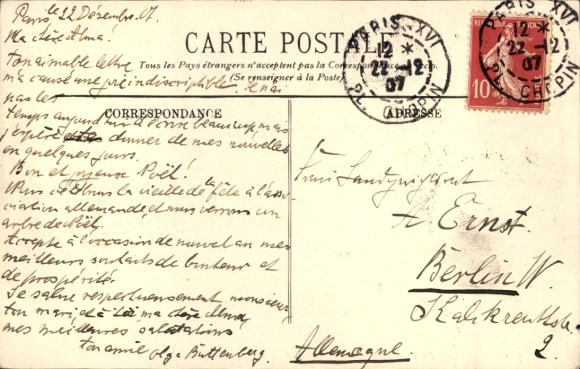 Paris, le 22 Décembre 07.
Ma chère Alma!
Ton aimable lettre
m'a causé une joie indiscriptible. Je n'ai
pas le
temps aujourd'hui d'écrire beaucoup mais
j'espère donner de mes nouvelles
en quelques jours.
Bon et joyeux Noël!
Nous la vieille de la fête à l'asso-
ciation allemande et nous verrons un
arbre de Noël.
Accepte à l'occasion de nouvel an mes
meilleurs souhaits de bonheur et
de prospérité.
Je salue respectueusement monsieur
ton mari, à toi ma chère Alma,
mes meilleures salutations
ton amie Olga Büttenberg.
CARTE POSTALE
Tous les Pays étrangers n'acceptent pas la Correspondance au recto.
(Se renseigner à la Poste)
CORRESPONDANCE
ADRESSE
PARIS XVI
12 *
22 -12
07
PL. CHOPIN
PARIS XVI
12 *
22 -12
07
PL. CHOPIN
10
Frau
A. Ernst.
Berlin W.
Kalkreuthstr.
2.
Allemagne.